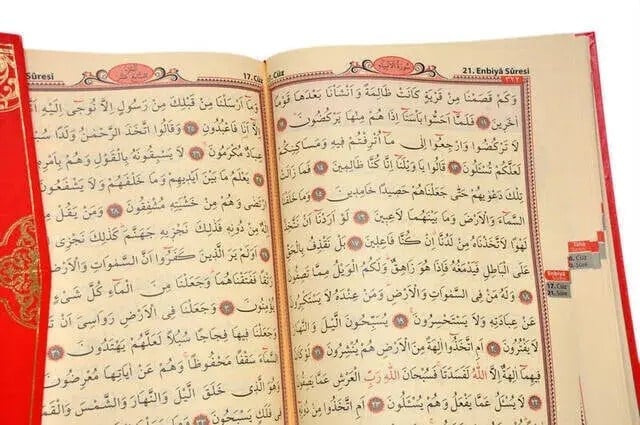 Sûresi
17. Cüz
وَمَا اَرْسَلْنَا مِنْ قَبْلِكَ مِنْ رَسُولٍ اِلَّا نُوحِى اِلَيْهِ
اِلَّا اَنَا فَاعْبُدُونِ ﴿٢٥﴾ وَقَالُوا اتَّخَذَ الرَّحْمٰنُ وَلَدًا
عِبَادٌ مُكْرَمُونَ ﴿٢٦﴾ لَا يَسْبِقُونَهُ بِالْقَوْلِ وَهُمْ بِاَمْرِهِ
﴿٢٧﴾ يَعْلَمُ مَا بَيْنَ اَيْدِيهِمْ وَمَا خَلْفَهُمْ وَلَا يَشْفَعُونَ
ارْتَضٰى وَهُمْ مِنْ خَشْيَتِهِ مُشْفِقُونَ ﴿٢٨﴾ وَمَنْ يَقُلْ
مِنْ دُونِهِ فَذٰلِكَ نَجْزِيهِ جَهَنَّمَ كَذٰلِكَ نَجْزِى
﴿٢٩﴾ اَوَلَمْ يَرَ الَّذِينَ كَفَرُوا اَنَّ السَّمٰوَاتِ وَالْاَرْضَ
رَتْقًا فَفَتَقْنَاهُمَا وَجَعَلْنَا مِنَ الْمَاءِ كُلَّ شَىْءٍ
يُؤْمِنُونَ ﴿٣٠﴾ وَجَعَلْنَا فِى الْاَرْضِ رَوَاسِىَ اَنْ
فِيهَا فِجَاجًا سُبُلًا لَعَلَّهُمْ يَهْتَدُونَ ﴿٣١﴾
السَّمَاءَ سَقْفًا مَحْفُوظًا وَهُمْ عَنْ اٰيَاتِهَا مُعْرِضُونَ
وَهُوَ الَّذِى خَلَقَ الَّيْلَ وَالنَّهَارَ وَالشَّمْسَ وَالْقَمَرَ
فِى فَلَكٍ يَسْبَحُونَ
Cüz
سورة الانبياء
21. Enbiyâ Sûresi
وَكَمْ قَصَمْنَا مِنْ قَرْيَةٍ كَانَتْ ظَالِمَةً وَاَنْشَأْنَا بَعْدَهَا قَوْمًا
اٰخَرِينَ ﴿١١﴾ فَلَمَّا اَحَسُّوا بَأْسَنَا اِذَا هُمْ مِنْهَا يَرْكُضُونَ ﴿١٢﴾
لَا تَرْكُضُوا وَارْجِعُوا اِلٰى مَا اُتْرِفْتُمْ فِيهِ وَمَسَاكِنِكُمْ
لَعَلَّكُمْ تُسْـَٔلُونَ ﴿١٣﴾ قَالُوا يَا وَيْلَنَا اِنَّا كُنَّا ظَالِمِينَ ﴿١٤﴾ فَمَا زَالَتْ
تِلْكَ دَعْوٰيهُمْ حَتّٰى جَعَلْنَاهُمْ حَصِيدًا خَامِدِينَ ﴿١٥﴾
السَّمَاءَ وَالْاَرْضَ وَمَا بَيْنَهُمَا لَاعِبِينَ ﴿١٦﴾ لَوْ اَرَدْنَا اَنْ نَتَّخِذَ
لَهْوًا لَاتَّخَذْنَاهُ مِنْ لَدُنَّا اِنْ كُنَّا فَاعِلِينَ ﴿١٧﴾ بَلْ نَقْذِفُ بِالْحَقِّ
عَلَى الْبَاطِلِ فَيَدْمَغُهُ فَاِذَا هُوَ زَاهِقٌ وَلَكُمُ الْوَيْلُ مِمَّا تَصِفُونَ
﴿١٨﴾ وَلَهُ مَنْ فِى السَّمٰوَاتِ وَالْاَرْضِ وَمَنْ عِنْدَهُ لَا يَسْتَكْبِرُونَ
عَنْ عِبَادَتِهِ وَلَا يَسْتَحْسِرُونَ ﴿١٩﴾ يُسَبِّحُونَ الَّيْلَ وَالنَّهَارَ
لَا يَفْتُرُونَ ﴿٢٠﴾ اَمِ اتَّخَذُوا اٰلِهَةً مِنَ الْاَرْضِ هُمْ يُنْشِرُونَ ﴿٢١﴾
فِيهِمَا اٰلِهَةٌ اِلَّا اللّٰهُ لَفَسَدَتَا فَسُبْحَانَ اللّٰهِ رَبِّ الْعَرْشِ عَمَّا يَصِفُونَ
﴿٢٢﴾ لَا يُسْـَٔلُ عَمَّا يَفْعَلُ وَهُمْ يُسْـَٔلُونَ ﴿٢٣﴾ اَمِ اتَّخَذُوا مِنْ دُونِهِ
Cüz
Enbiyâ
17. Cüz
21. Sûre